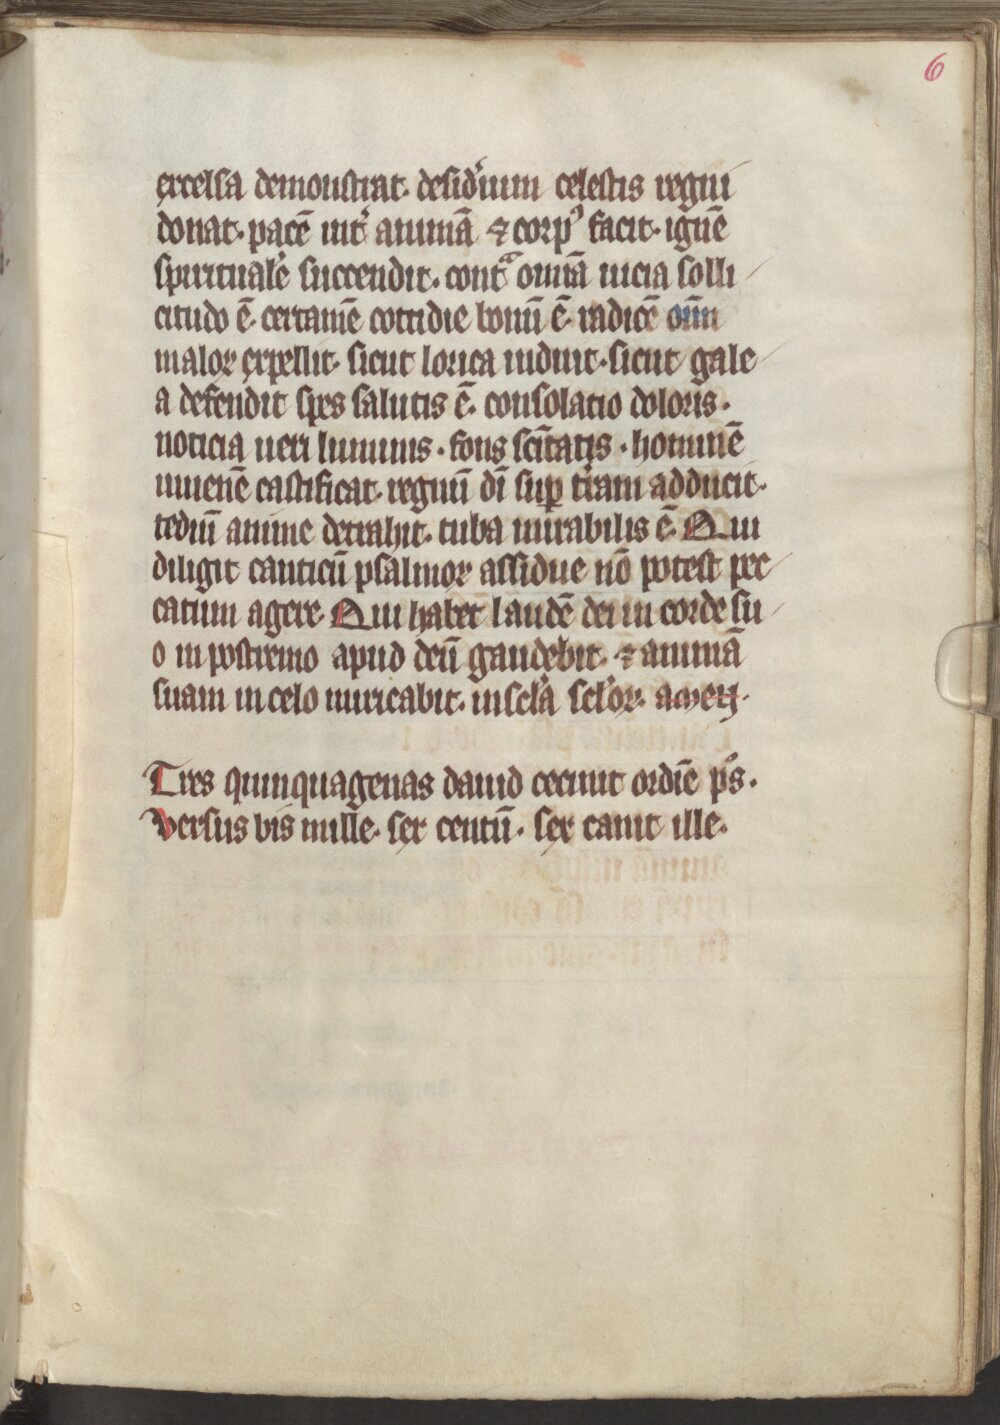 6
excelsa demonstrat· desid'ium celestis regni
donat· pacē int' animā ⁊ corpꝰ facit· ignē
spiritualē succendit· contᵃ omīa uicia solli
citudo ē· certamē cottidie bonū ē· radicē om̄n
maloꝝ expellit· sicut lorica induit· sicut gale
a defendit spes salutis ē· consolatio doloris·
noticia ueri luminis· fons sc̄itatis· hominē
iuuenē castificat· regnū dī suꝑ t'ram adducit·
tediū anime detrahit· tuba mirabilis ē· Qui
diligit canticū psalmoꝝ assidue nō potest pec
catum agere· Qui habet laudē dei in corde su
o in postremo apud deū gaudebit· ⁊ animā
suam in celo miricabit· in sc'la sc'loꝝ· amen·
Tres quinquagenas dauid cecinit ordīe ps·
Versus bis mille· sex centū· sex canit ille·